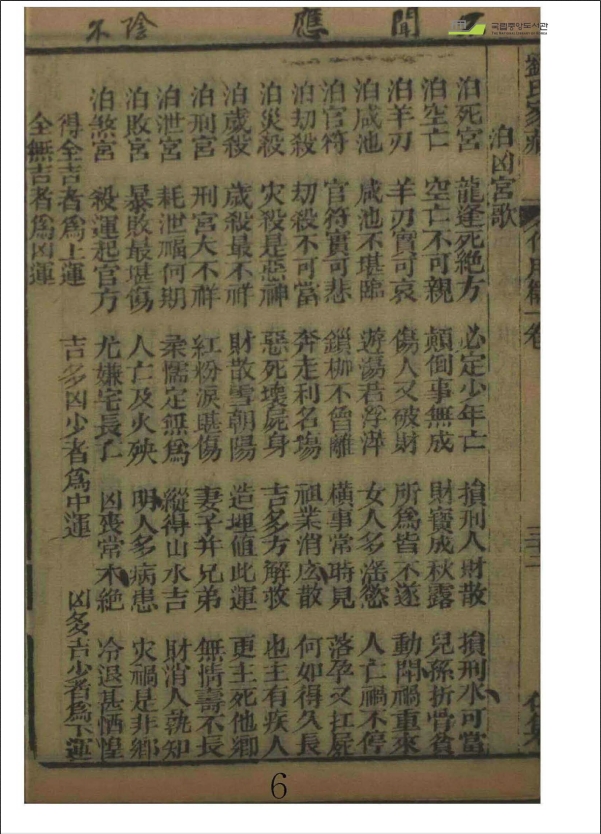 國立中央도서관
THE NATIONAL LIBRARY OF KOREA
聞 應
陰 不
泊凶宮歌
泊死宮 龍逢死絶方 必定少年亡 損刑人財散 損刑水可當
泊空亡 空亡不可親 顛倒事無成 財寶成秋露 兒孫折骨貧
泊羊刃 羊刃實可哀 傷人又破財 所爲皆不遂 動閙禍重來
泊咸池 咸池不堪臨 遊蕩若浮萍 女人多滛慾 人亡禍不停
泊官符 官符實可悲 鎖枷不曾離 橫事常時見 落孕又扛屍
泊刧殺 刧殺不可當 奔走利名塲 祖業消庅散 何如得久長
泊灾殺 灾殺是惡神 惡死壞屍身 吉多方解救 也主有疾人
泊歲殺 歲殺最不祥 財散雪朝陽 造埋値此運 更主死他鄉
泊刑宮 刑宮大不祥 紅粉淚堪傷 妻子并兄弟 無情壽不長
泊泄宮 耗泄禍何期 柔懦定無爲 縱得山水吉 財消人孰知
泊敗宮 暴敗最堪傷 人亡及火殃 明人多病患 灾禍是非鄉
泊煞宮 殺運起官方 尤嫌宅長子 凶喪常不絕 冷退甚恓惶
得全吉者爲上運 吉多凶少者爲中運 凶多吉少者爲下運
全無吉者爲凶運
6